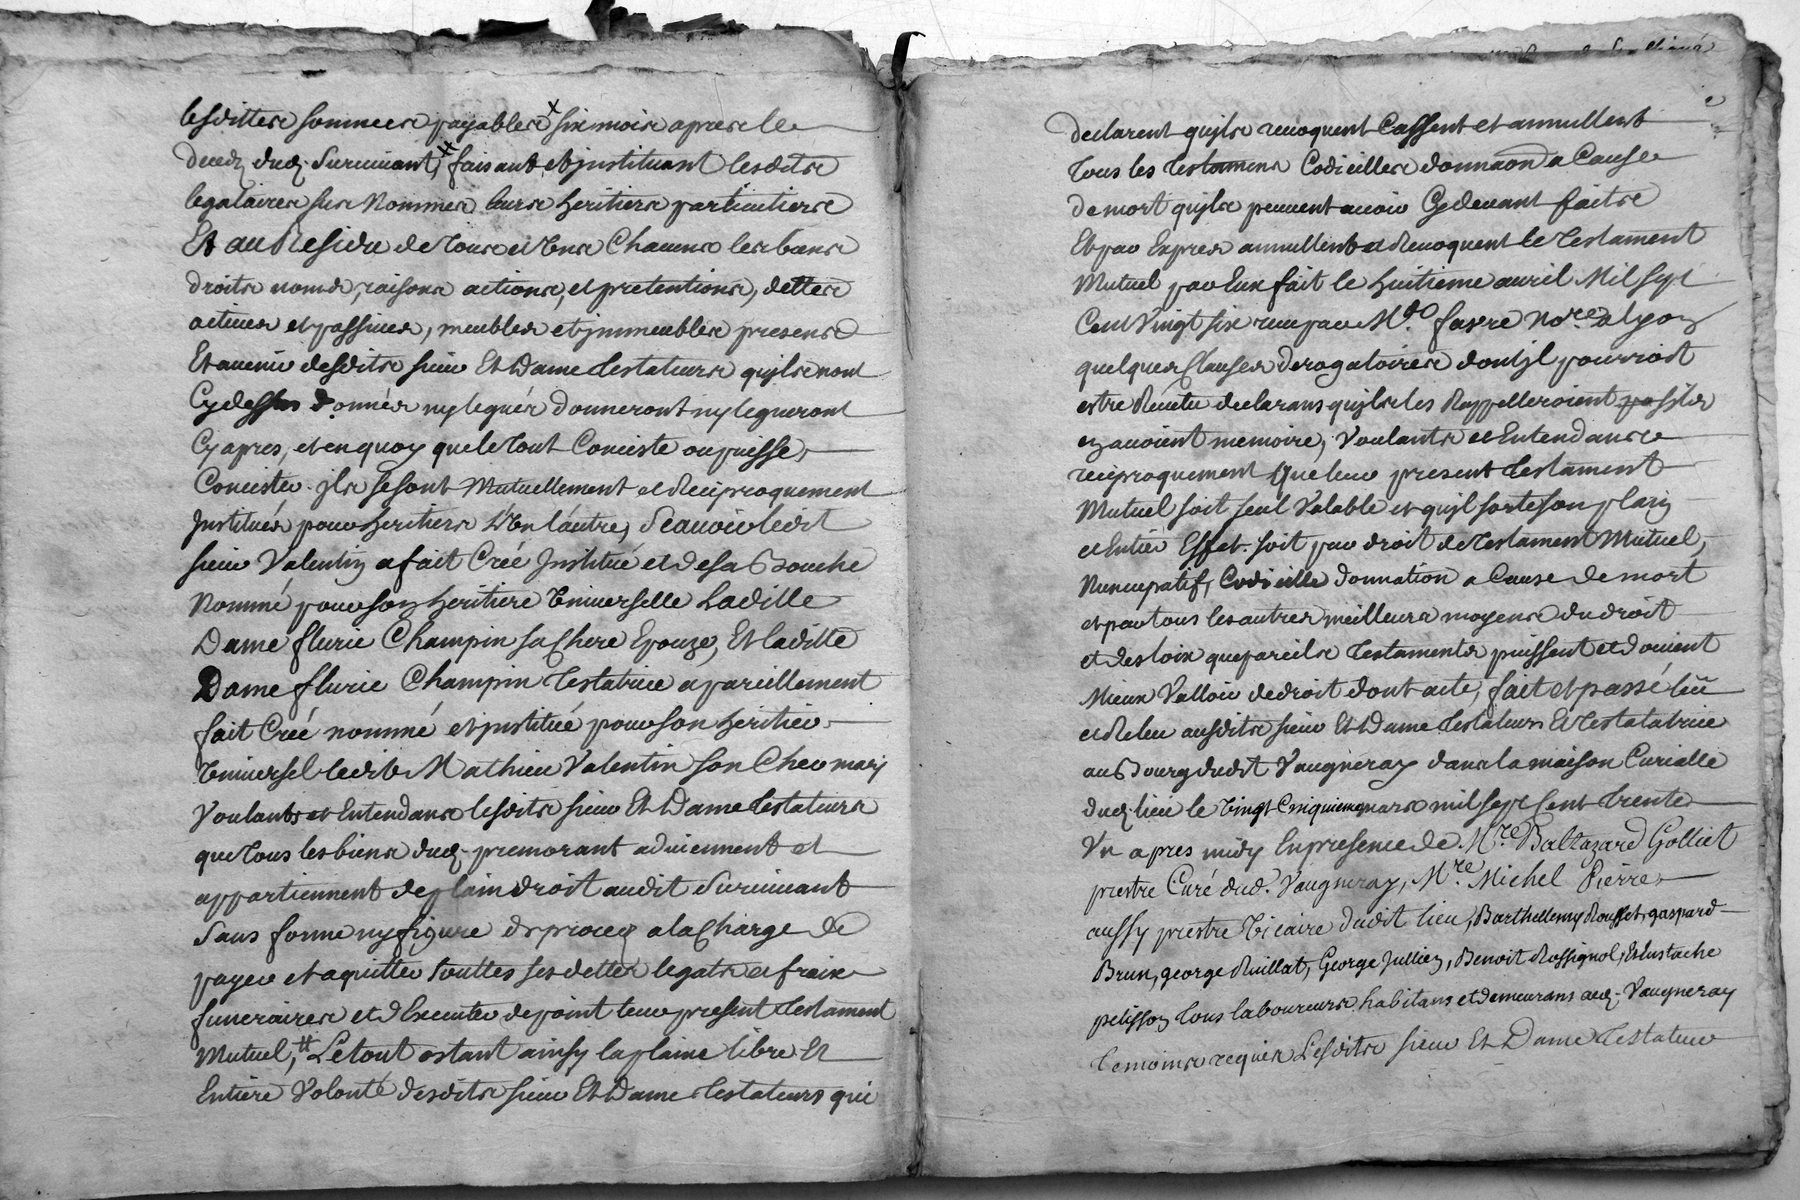 lesdittes sommes payables x six mois apres le
deced dud. Survivant, # faisant et jnstituant lesdits
legataires sus Nommes leurs heritiers particuliers
Et au Residu de Tous et Uns Chacuns les biens
droits noms, raisons actions, et pretentions, dettes
actives et passives, meubles et jmmeubles presens
Et avenir desdits sieur Et Dame Testateurs qujls nont
Cydessus donnés ny legués donneront ny legueront
Cyapres, et en quoy que le Tout Conciste ou puisse
Concister jls se sont Mutuellement et Reciproquement
Jnstitués pour heritiers L'Un l'autre, Scavoir ledit
sieur Valentin a fait Créé Jnstitué et de sa Bouche
Nommé pour son heritiere Universelle Laditte
Dame flurie Champin sa Chere Epouze, Et laditte
Dame flurie Champin Testatrice a pareillement
fait Créé nommé et jnstitué pour son heritier
Universel ledit Mathieu Valentin son Cher mary
Voulants et Entendans lesdits sieur Et Dame Testateurs
que Tous les biens dud. premorant adviennent et
appartiennent de plain droit audit Survivant
Sans forme ny figure de procez a la Charge de
payer et aquitter Touttes ses dettes legats et fraix
funeraires et d'Executer de point leur present Testament
Mutuel, # Le tout estant ainsy la plaine libre Et
Entiere Volonté desdits sieur Et Dame Testateurs qui
declarent qujls revoquent Cassent et annullent
Tous les Testamens Codicilles donnaon a Cause
de mort qujls peuvent avoir Cydevant faits
Et par Expres annullent et Revoquent le Testament
Mutuel par Eux fait le huitieme avril Mil sept
Cent Vingt six reçu par Me favre Nore a lyon
quelques Clauses derogatoires dont jl pourroit
estre Revetu declarans qujls les Rappelleroient sils
en avoient memoire, Voulants et Entendans
reciproquement Que leur present Testament
Mutuel soit seul Valable et qujl sorte son plain
et Entier Effet soit par droit de Testament Mutuel,
Nuncupatif, Codicille donnation a Cause de mort
et par tous les autres meilleurs moyens du droit
et des loix que pareils Testaments puissent et doivent
Mieux Valloir de droit dont acte, fait et passé leu
et Releu ausdits sieur Et Dame Testateurs Et Testatatrice
au Bourg dudt Vaugneray dans la maison Curialle
dud. lieu le Vingt Cinquieme mars mil sept Cent Trente
Un apres midy En presence de Mre Baltazard Golliet
prestre Curé dud. Vaugneray, Mre Michel Pierre
aussy prestre Vicaire dudit lieu, Barthellemy Rousset, gaspard
Brun, george Ruillat, George Jullien, Benoit Rossignol, Et Eustache
pelisson Tous laboureurs habitans et demeurans aud. Vaugneray
Temoins requis Lesdits sieur Et Dame Testateur